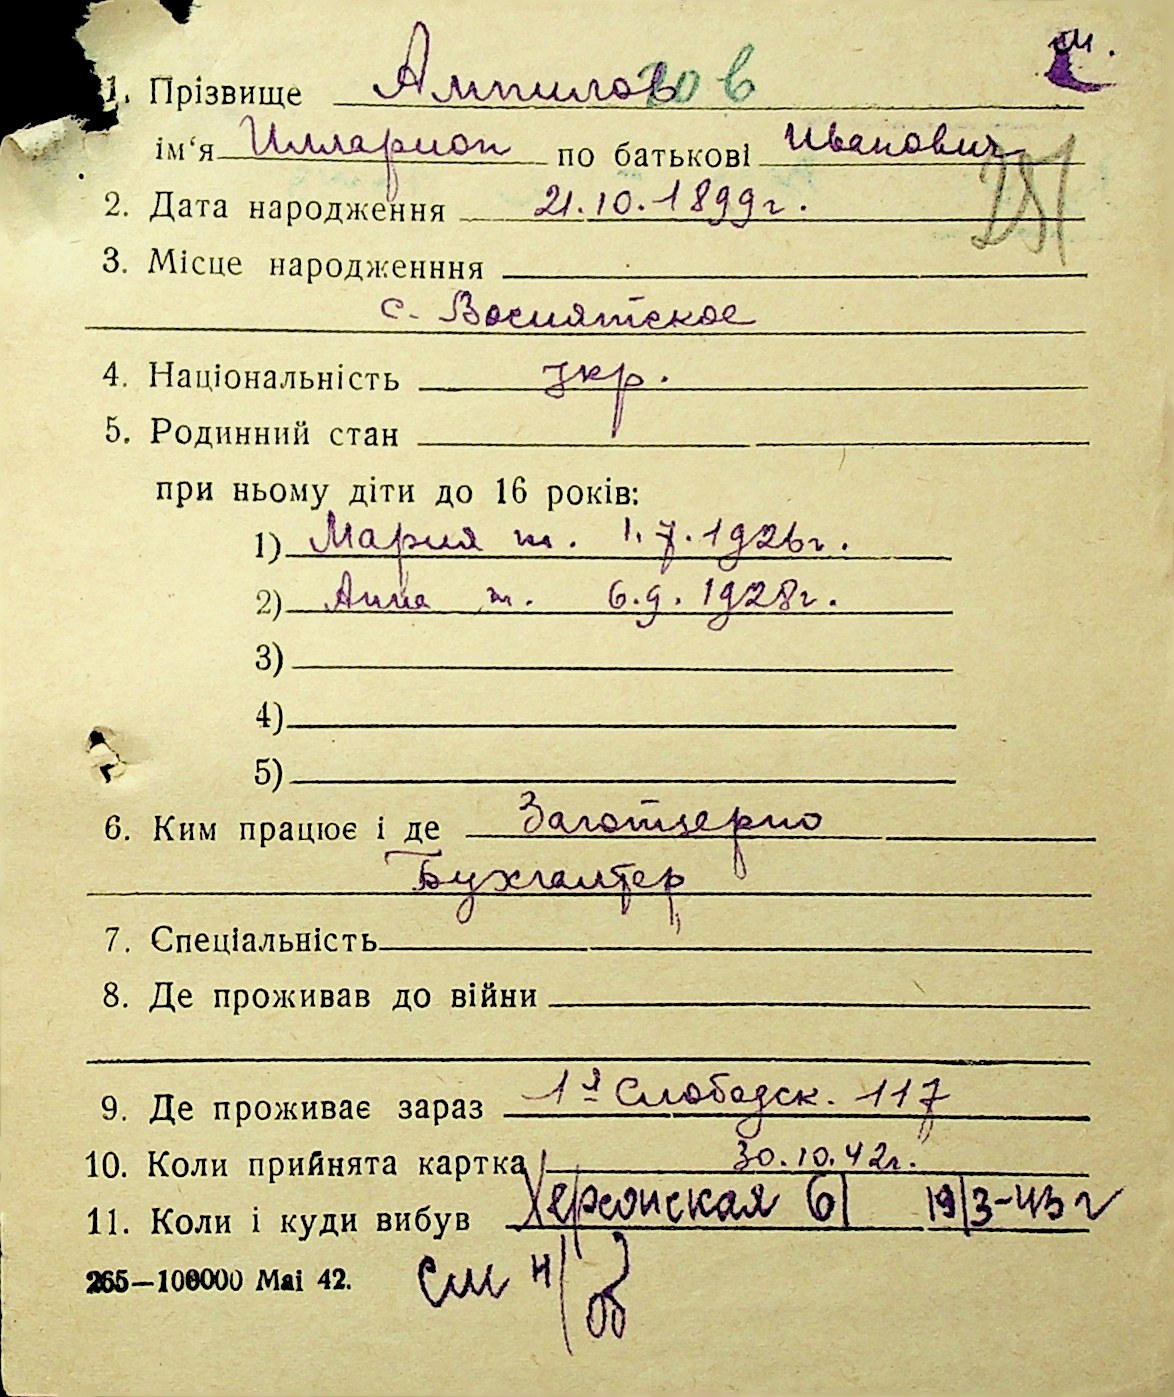 м.
1. Прізвище Ампилогов
ім‘я Илларион по батькові Иванович
251
2. Дата народження 21.10.1899г.
3. Місце народженння
с. Восиятское
4. Національність укр.
5. Родинний стан
при ньому діти до 16 років:
1) Мария т. 1.7.1926г.
2) Анна т. 6.9.1928г.
3)
4)
5)
6. Ким працює і де Заготзерно
Бухгалтер
7. Спеціальність
8. Де проживав до війни
9. Де проживає зараз 1я Слободск. 117
10. Коли прийнята картка 30.10.42г.
11. Коли і куди вибув Херсонская 61 19/3-43 г
265—100000 Mai 42. См н/об